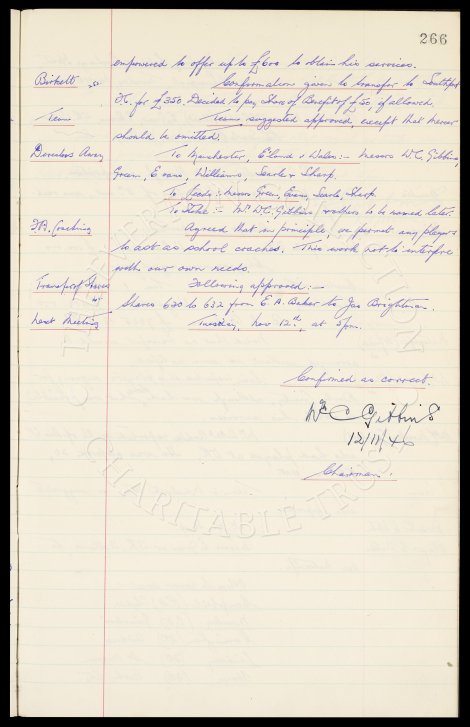 266
empowered to offer up to £600 to obtain his services.
Birkett Confirmation given to transfer to Southport
for £350. Decided to pay Share of Benefit of £50, if allowed.
Team Team suggested approved, except that Mercer
should be omitted.
Directors Away To Manchester, England v Wales:- Messrs W.C. Gibbins,
Green, Evans, Williams, Searle & Sharp.
To Leeds:- Messrs Green, Evans, Searle, Sharp.
To Stoke:- Mr. W.C. Gibbins, & others to be named later.
F.A. Coaching Agreed that in principle, we permit any players
to act as school coaches. This work not to interfere
with our own needs.
Transfer of Shares Following approved:-
Shares 630 to 632 from E. A. Baker to Jas Brightman.
Next Meeting Tuesday, Nov 12th, at 5pm.
Confirmed as correct.
W C Gibbins
12/11/46
Chairman.
CHARITABLE TRUST